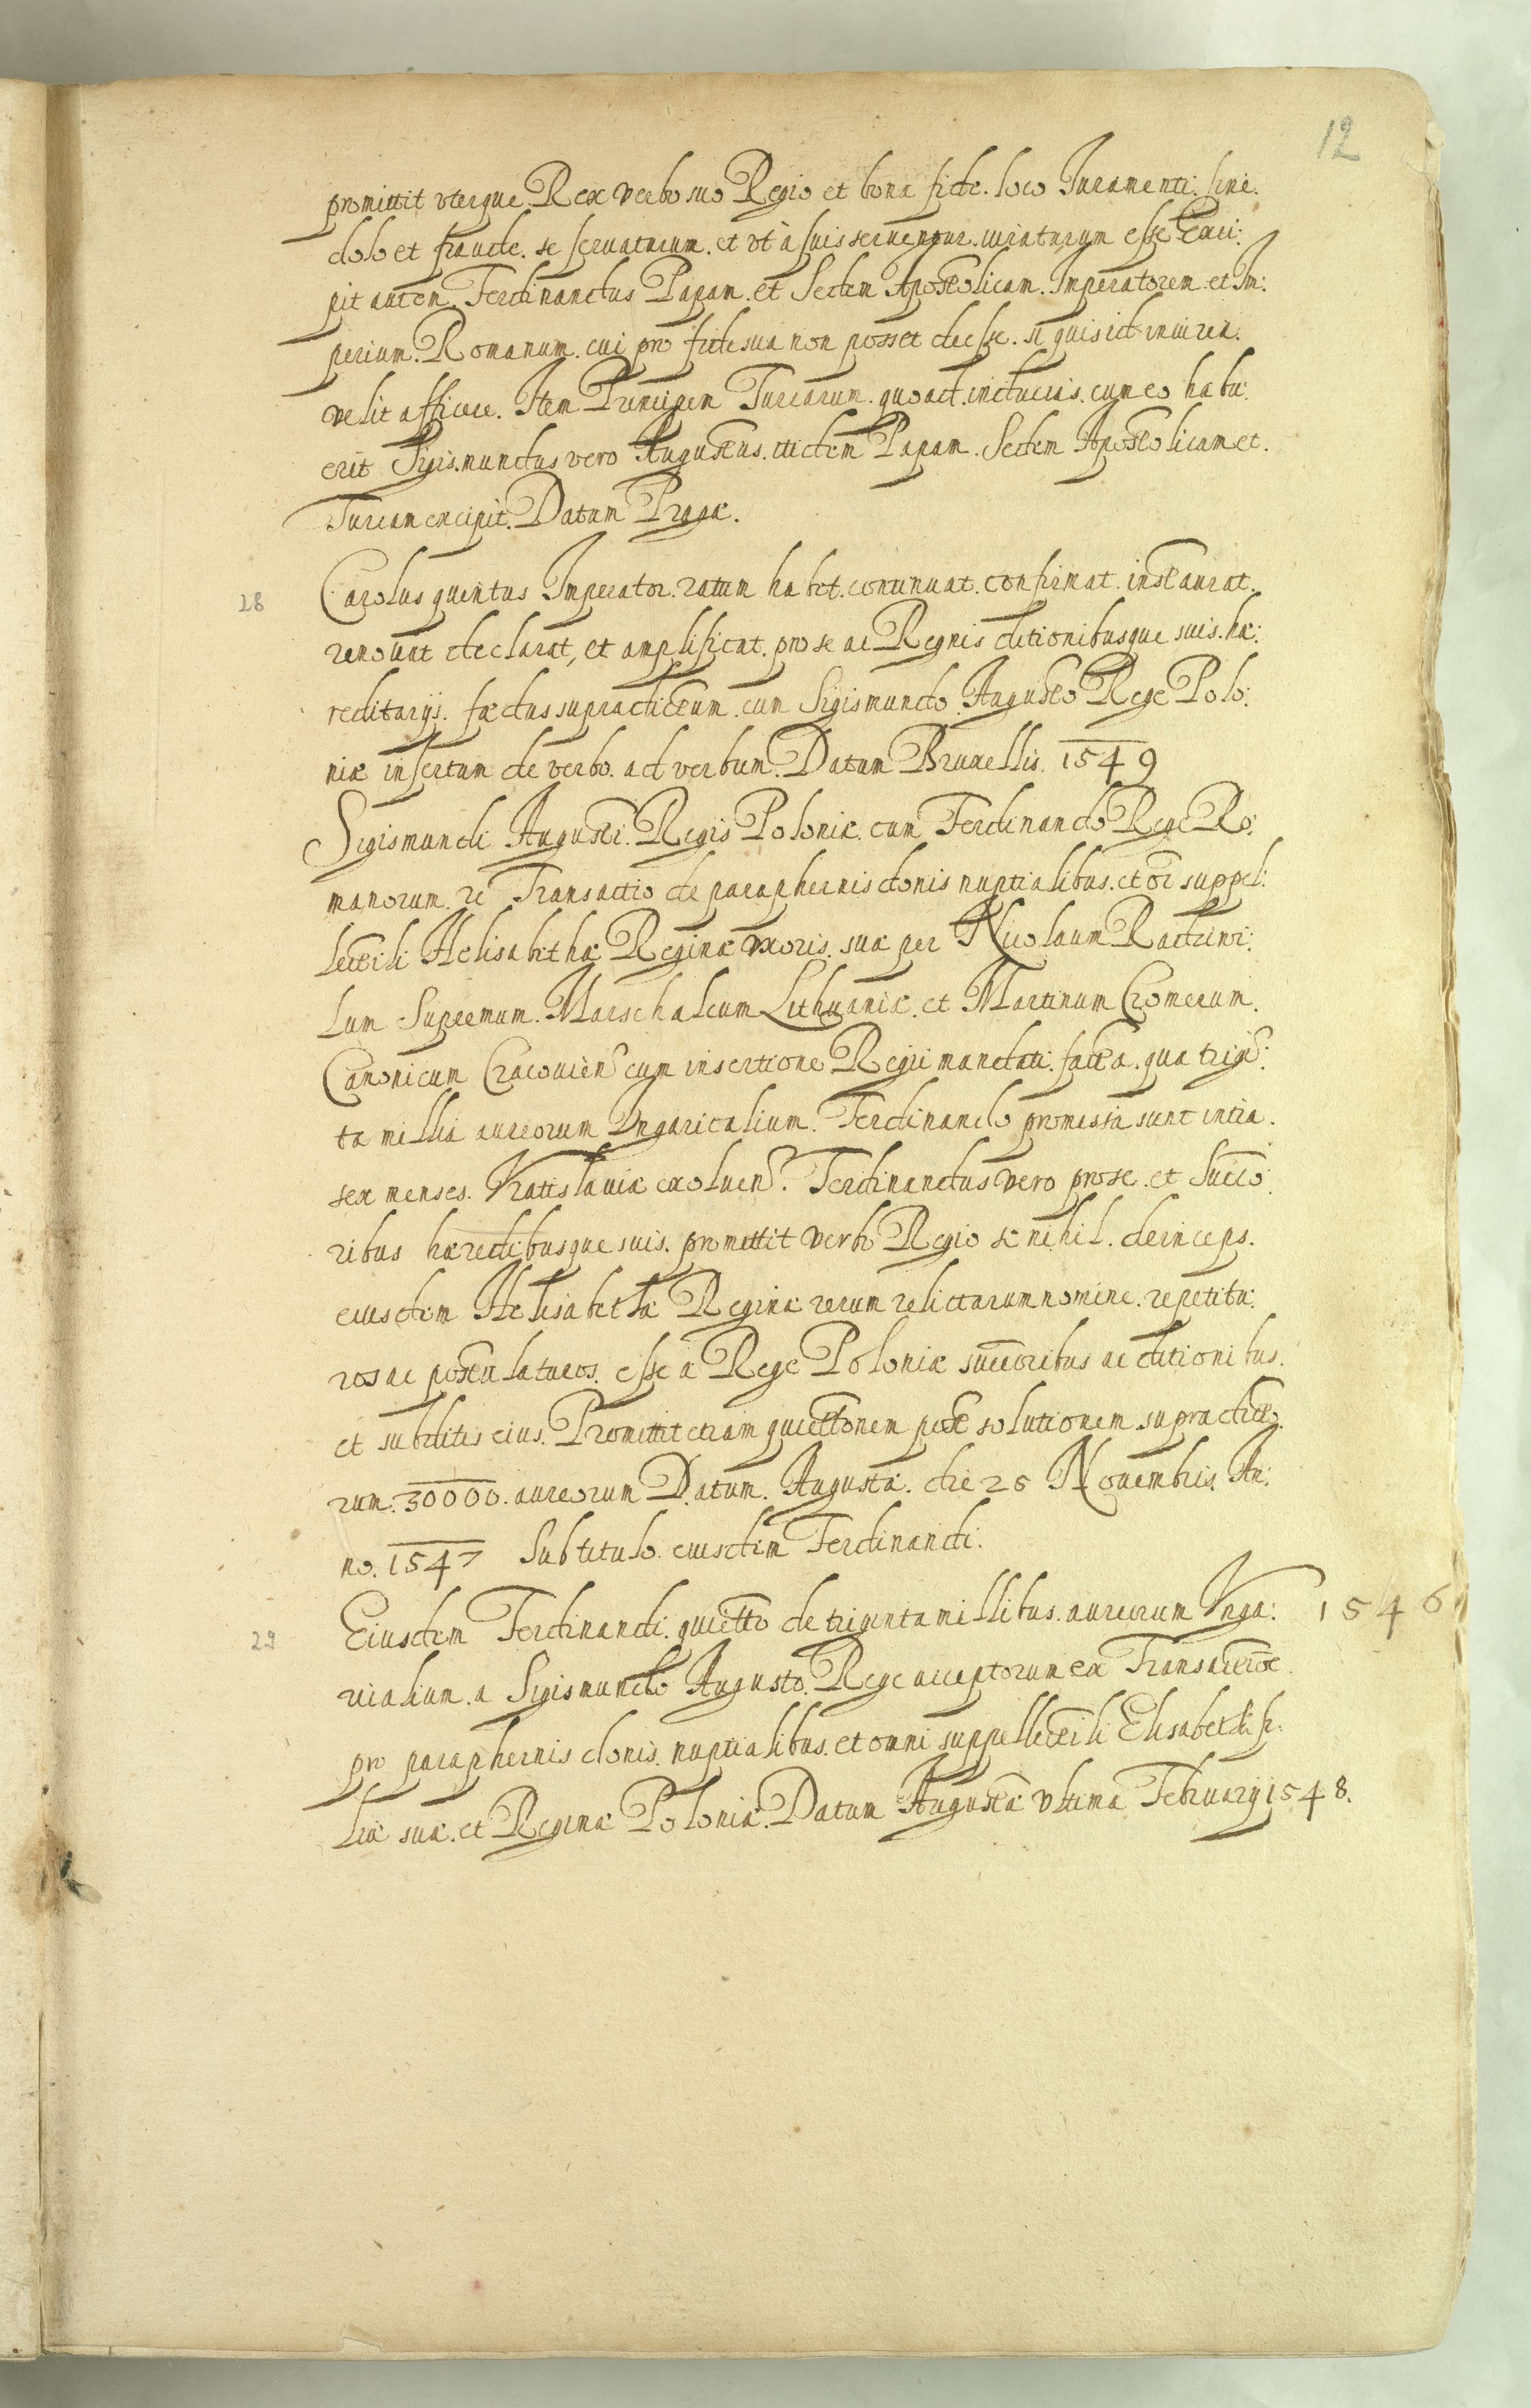 12
promittit vterque Rex verbo suo Regio et bona fide. loco Juramenti. sine.
dolo et fraude. se seruaturum. et vt à suis seruentur. curaturum esse Exci:
pit autem Ferdinandus Papam. et Sedem Apostolicam. Imperatorem et Im:
perium. Romanum. cui pro fide sua non posset deesse. si quis id iniuria.
velit afficere. Item Principem Turcarum. quoad. inducias. cum eo habu:
erit Sigismundus vero Augustus. itidem Papam. Sedem Apostolicam et.
Turcam excipit. Datum Pragæ.
28 Carolus quintus Imperator. ratum habet. continuat. confirmat. instaurat.
renouat declarat, et amplificat. pro se ac Regnis ditionibusque suis. hæ:
reditarijs. fœdus supradictum. cum Sigismundo Augusto Rege Polo:
niæ insertum de verbo. ad verbum. Datum Bruxellis. 1549
Sigismundi Augusti. Regis Poloniæ. cum Ferdinando Rege Ro:
manorum. re Transactio de paraphernis donis nuptialibus. et oi suppel:
lectili Helisabethæ Reginæ vxoris. suæ per Nicolaum Radziui:
lum Supremum. Marschalcum Lithuaniæ. et Martinum Cromerum.
Canonicum Cracouien cum insertione Regii mandati. facta. qua trigi:
ta millia aureorum Vngaricalium. Ferdinando promissa sunt intra.
sex menses. Vratislauiæ exoluen. Ferdinandus vero pro se. et Succo
ribus hæredibusque suis. promittit verbo Regio se nihil. deinceps.
eiusdem Helisabethæ Reginæ rerum relictarum nomine. repetitu:
ros ac postulaturos. esse a Rege Poloniæ succoribus ac ditionibus.
et subditis eius. Promittit etiam quiettonem post solutionem supradicto
rum. 30000. aureorum Datum. Augustæ. die 25 Nouembris. An:
no. 1547 Sub titulo. eiusdem Ferdinandi.
29 Eiusdem Ferdinandi. quietto de triginta millibus. aureorum Vnga: 1546
ricalium. a Sigismundo Augusto. Rege acceptorum ex Transactioe
pro paraphernis donis. nuptialibus. et omni suppellectili Elisabeth fi:
liæ suæ. et Reginæ Poloniæ. Datum Augustæ vltima February 1548.